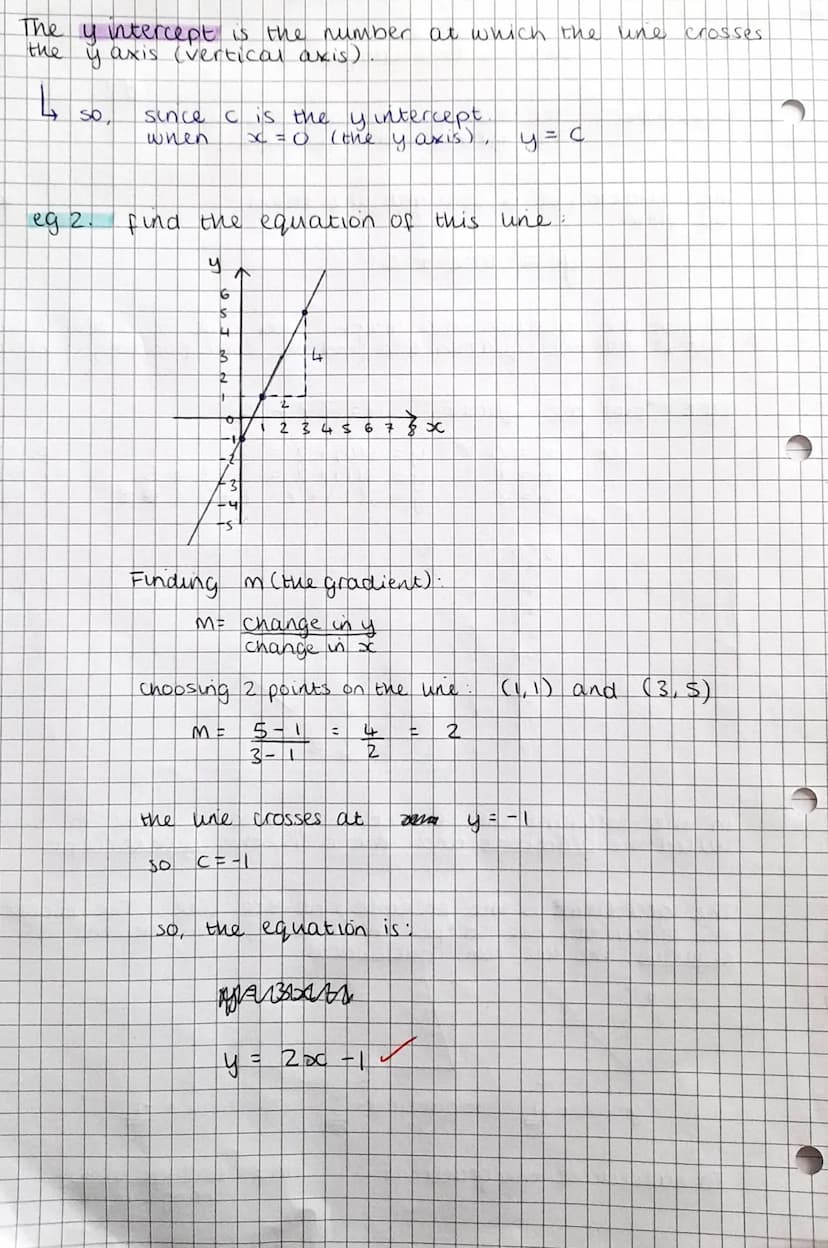 The y intercept is the number at which the line crosses
the y axis (vertical axis).
↳ so, since c is the y intercept.
when x = 0 (the y axis), y = c
eg 2. find the equation of this line:
y
6
5
4
3
2
1
0
-1
-2
-3
-4
-5
4
2
1 2 3 4 5 6 7 8 x
Finding m (the gradient):
m = change in y
change in x
choosing 2 points on the line: (1,1) and (3,5)
m = 5-1 = 4 = 2
3-1 2
the line crosses at y = -1
so c = -1
so, the equation is:
y = 2x -1 ✓